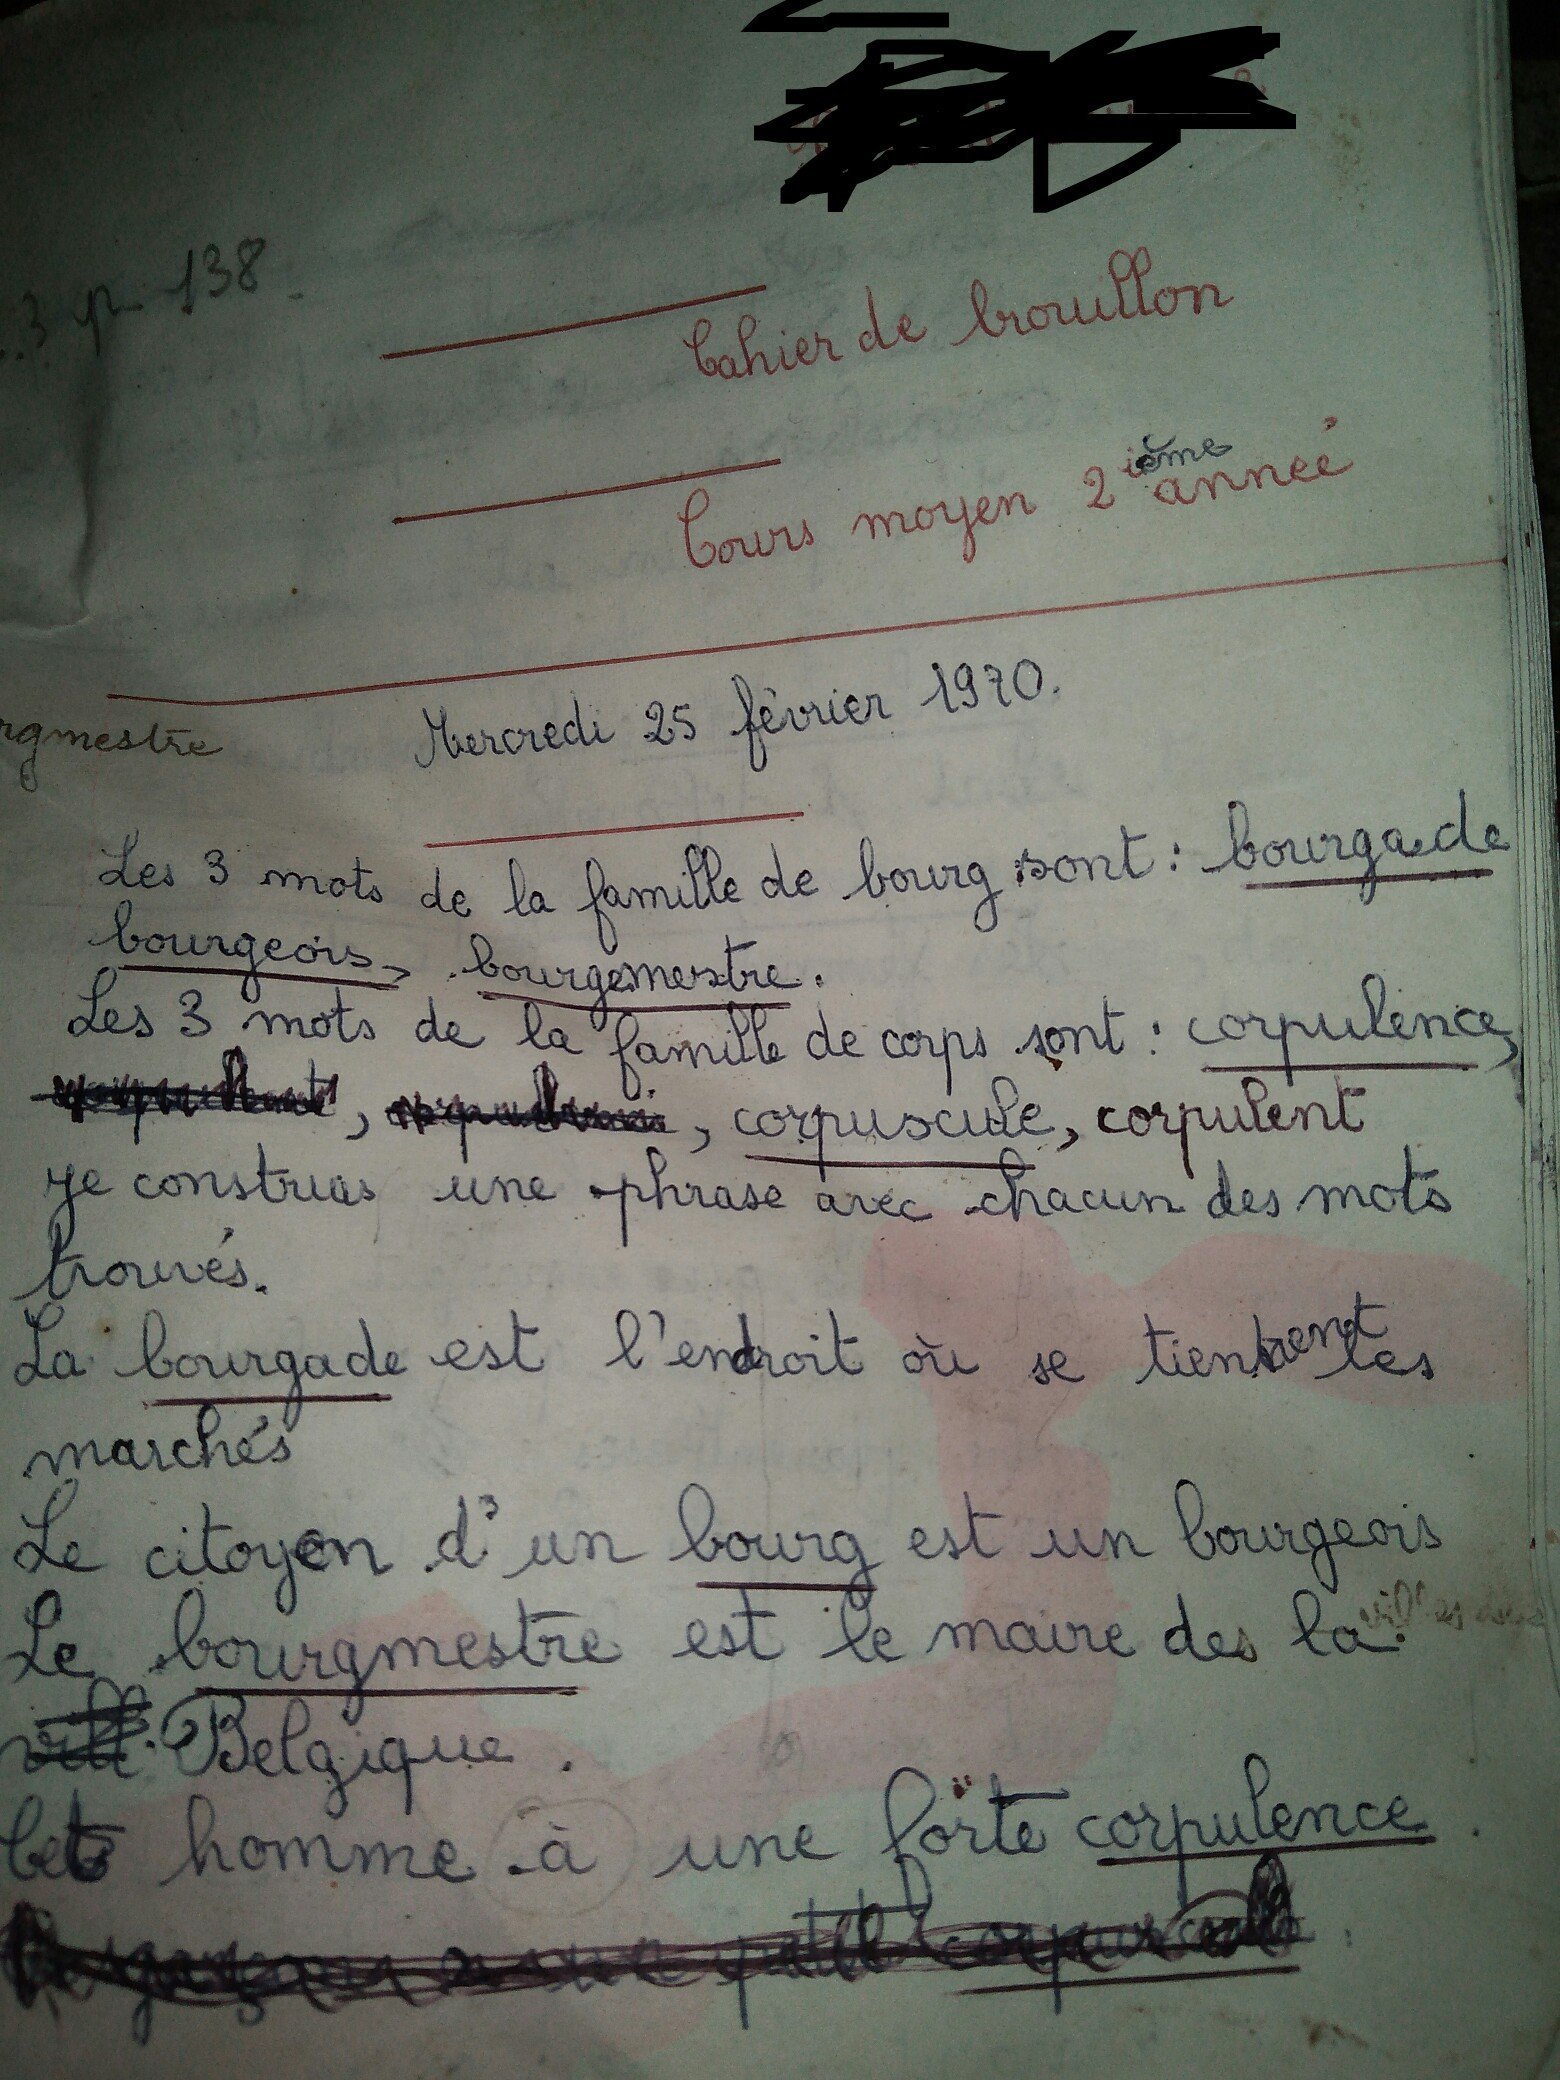 3 p 138
Cahier de brouillon
Cours moyen 2 ième année
Mercredi 25 février 1970.
rgmestre
Les 3 mots de la famille de bourg sont : bourgade
bourgeois, bourgemestre.
Les 3 mots de la famille de corps sont : corpulence,
, , corpuscule, corpulent
Je construis une phrase avec chacun des mots
trouvés.
La bourgade est l'endroit où se tiennent les
marchés
Le citoyen d'un bourg est un bourgeois
Le bourgmestre est le maire des la
Belgique.
Cet homme à une forte corpulence.